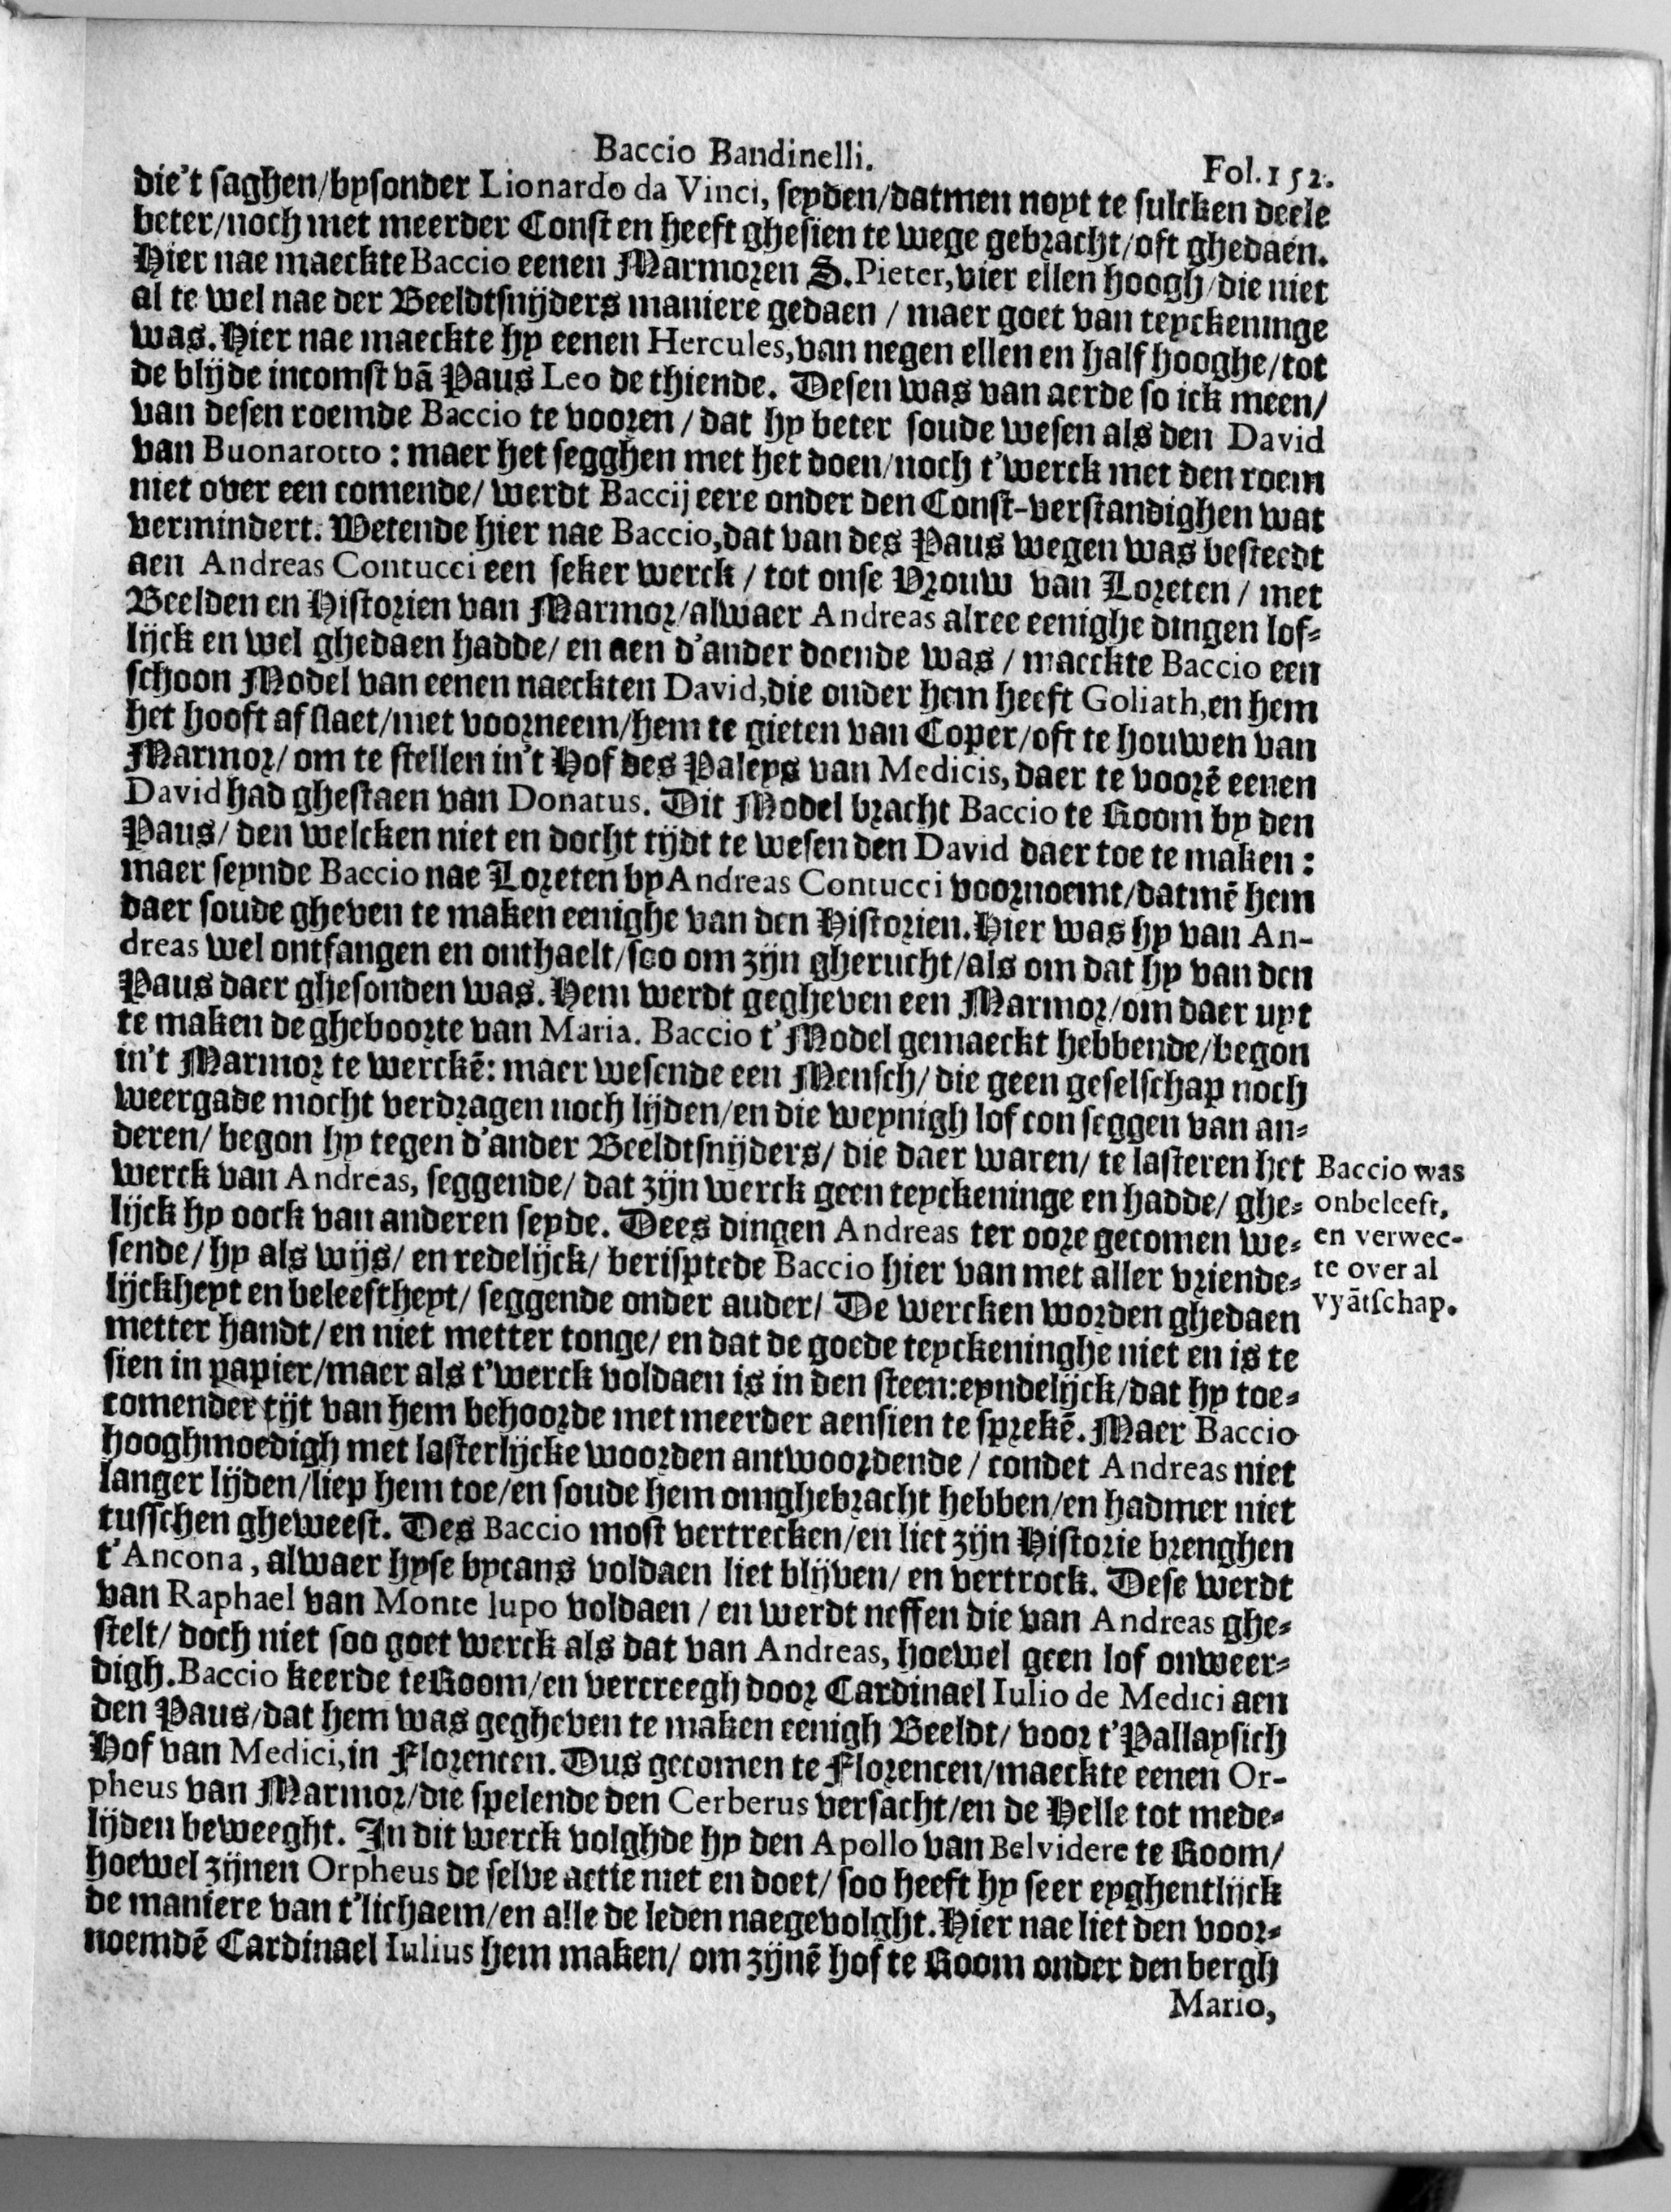 Baccio Bandinelli.
Fol.152.
die't saghen/bysonder Lionardo da Vinci, seyden/datmen noyt te sulcken deele
beter/noch met meerder Const en heeft ghesien te wege gebracht/oft ghedaen.
Hier nae maeckte Baccio eenen Marmoren S.Pieter,vier ellen hoogh/die niet
al te wel nae der Beeldtsnijders maniere gedaen / maer goet van teyckeninge
was.Hier nae maeckte hy eenen Hercules,van negen ellen en half hooghe/tot
de blijde incomst vā Paus Leo de thiende. Desen was van aerde so ick meen/
van desen roemde Baccio te vooren / dat hy beter soude wesen als den David
van Buonarotto : maer het segghen met het doen/noch t'werck met den roem
niet over een comende/ werdt Baccij eere onder den Const-verstandighen wat
vermindert. Wetende hier nae Baccio,dat van des Paus wegen was besteedt
aen Andreas Contucci een seker werck / tot onse Vrouw van Loreten / met
Beelden en Historien van Marmor/alwaer Andreas alree eenighe dingen lof-
lijck en wel ghedaen hadde/ en aen d'ander doende was / maeckte Baccio een
schoon Model van eenen naeckten David,die onder hem heeft Goliath,en hem
het hooft af slaet/met voorneem/hem te gieten van Coper/oft te houwen van
Marmor/ om te stellen in't Hof des Paleys van Medicis, daer te voorē eenen
David had ghestaen van Donatus. Dit Model bracht Baccio te Room by den
Paus/ den welcken niet en docht tijdt te wesen den David daer toe te maken :
maer seynde Baccio nae Loreten by Andreas Contucci voornoemt/datmē hem
daer soude gheven te maken eenighe van den Historien.Hier was hy van An-
dreas wel ontfangen en onthaelt/soo om zijn gherucht/als om dat hy van den
Paus daer ghesonden was. Hem werdt gegheven een Marmor/om daer uyt
te maken de gheboorte van Maria. Baccio t'Model gemaeckt hebbende/begon
in't Marmor te werckē: maer wesende een Mensch/ die geen geselschap noch
weergade mocht verdragen noch lijden/en die weynigh lof con seggen van an-
deren/ begon hy tegen d'ander Beeldtsnijders/ die daer waren/ te lasteren het
werck van Andreas, seggende/ dat zijn werck geen teyckeninge en hadde/ ghe-
lijck hy oock van anderen seyde. Dees dingen Andreas ter oore gecomen we-
sende/ hy als wijs/ en redelijck/ berisptede Baccio hier van met aller vriende-
lijckheyt en beleeftheyt/ seggende onder ander/ De wercken worden ghedaen
metter handt/ en niet metter tonge/ en dat de goede teyckeninghe niet en is te
sien in papier/maer als t'werck voldaen is in den steen:eyndelijck/dat hy toe-
comender tijt van hem behoorde met meerder aensien te sprekē. Maer Baccio
hooghmoedigh met lasterlijcke woorden antwoordende / condet Andreas niet
langer lijden/liep hem toe/en soude hem omghebracht hebben/en hadmer niet
tusschen gheweest. Des Baccio most vertrecken/en liet zijn Historie brenghen
t'Ancona, alwaer hyse bycans voldaen liet blijven/ en vertrock. Dese werdt
van Raphael van Monte lupo voldaen / en werdt neffen die van Andreas ghe-
stelt/ doch niet soo goet werck als dat van Andreas, hoewel geen lof onweer-
digh.Baccio keerde te Room/en vercreegh door Cardinael Iulio de Medici aen
den Paus/dat hem was gegheven te maken eenigh Beeldt/ voor t'Pallaysich
Hof van Medici,in Florencen. Dus gecomen te Florencen/maeckte eenen Or-
pheus van Marmor/die spelende den Cerberus versacht/en de Helle tot mede-
lijden beweeght. In dit werck volghde hy den Apollo van Belvidere te Room/
hoewel zijnen Orpheus de selve actie niet en doet/ soo heeft hy seer eyghentlijck
de maniere van t'lichaem/en alle de leden naegevolght.Hier nae liet den voor-
noemdē Cardinael Iulius hem maken/ om zijnē hof te Room onder den bergh
Mario,
Baccio was
onbeleeft,
en verwec-
te over al
vyātschap.